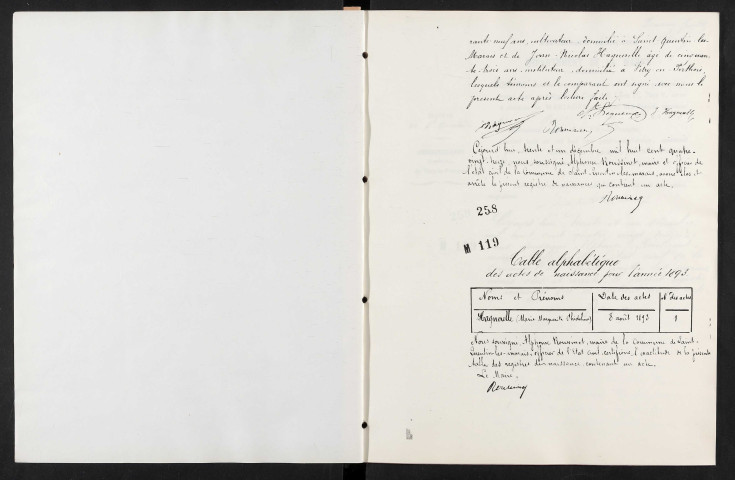 rante neuf ans, cultivateur, domicilié à Saint Quentin les
Marais et de Jean-Nicolas Hagnerelle âgé de cinquan
te trois ans, instituteur, domicilié à Vitry en Perthois,
lesquels témoins et le comparant ont signé avec nous le
présent acte après lecture faite.
Cejourd'hui, trente et un décembre mil huit cent quatre-
vingt-treize, nous soussigné Alphonse Roussinot, maire et officier de
l'état civil de la commune de Saint-Quentin-les-marais, avons clos et
arrêté le présent registre de naissances qui contient un acte.
258
M 119
Table alphabétique
des actes de naissance pour l'année 1893.
Noms et Prénoms Date des actes No des actes
Hagnerelle (Marie Marguerite 8 août 1893 1
Nous soussigné, Alphonse Roussinot, maire de la commune de Saint-
Quentin-les-marais, officier de l'état civil, certifions l'exactitude de la présente
table des registres de naissance contenant un acte.
Le Maire,